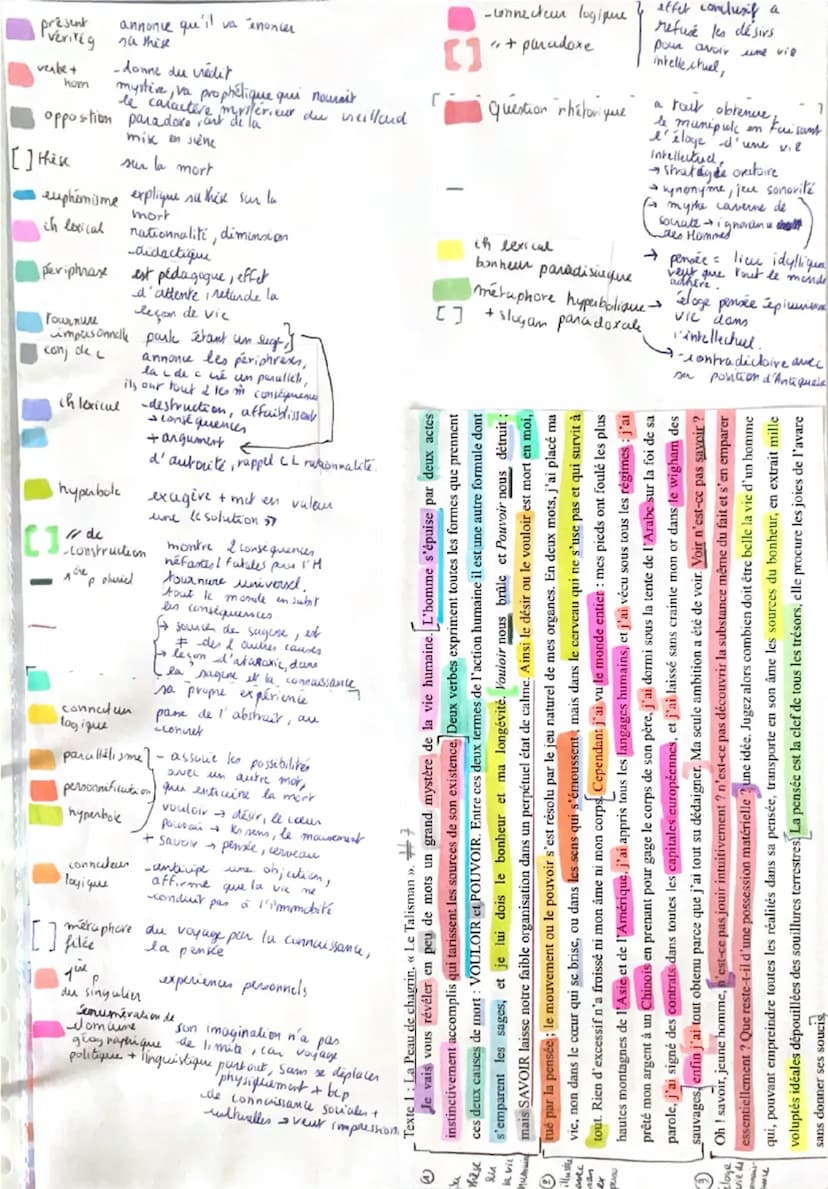 présent vérité
annonce qu'il va énoncer
sa thèse
verbe + nom
-donne du crédit
mystère, va prophétique qui nourrit
le caractère mystérieux du vieillard
opposition
paradoxe
mise en scène
[ ] thèse
sur la mort
euphémisme
explique sa thèse sur la
mort
ch lexical
rationnalité, dimension
didactique
périphrase
est pédagogue, effet
d'attente, retarde la
leçon de vie
tournure
impersonnelle
parle étant un sage,
conj de c
annonce les périphrases,
la c de c crée un parallèle,
ils ont tout 2 les m̂ conséquences
ch lexical
-destruction, affaiblissent
→ conséquences
+ argument
d'autorité, rappel CL rationnalité.
hyperbole
exagère + met en valeur
une
[ ] // de
-construction
montre 2 conséquences
néfastes / fatales pour l'H
1ère p pluriel
tournure universel.
tout le monde en subit
les conséquences
→ sources de sagesse, est
≠ des 2 autres causes
→ leçon d'ataraxie, dans
la sagesse et la connaissance
sa propre expérience
connecteur
logique
passe de l'abstrait, au
concret
parallélisme
- associe les possibilités
avec un autre mot,
que entraine la mort
personnification
hyperbole
vouloir → désir, le cœur
pouvoir → les sens, le mouvement
+ savoir → pensée, cerveau
connecteur
logique
-anticipe une objection,
affirme que la vie ne
conduit pas à l'immobilité
[ ] métaphore
filée
du voyage par la connaissance,
la pensée
1ère p
du singulier
expériences personnels
énumération de
domaine
géographique
politique + linguistique
son imagination n'a pas
de limite, car voyage
partout, sans se déplacer
physiquement + bcp
de connaissance sociales +
culturelles → veut impressionner
-connecteur logique
effet conclusif a
refusé les désirs
pour avoir une vie
intellectuel,
[ ] // + paradoxe
Question rhétorique
a tout obtenue,
le manipule en faisant
l'éloge d'une vie
intellectuel,
→ stratégie oratoire
→ synonyme, jeu sonorité
→ myrhe caverne de
socrate → ignorance
des Hommes
ch lexical
bonheur paradisiaque
→ pensée = lieu idyllique
veut que tout le monde
adhère.
métaphore hyperbolique →
[ ] + slogan paradoxale
éloge pensée épicurienne
vie dans
l'intellectuel.
→ -contradictoire avec
sa position d'Antiquaire
Texte 1 : La Peau de chagrin. « Le Talisman ». #7
Je vais vous révéler en peu de mots un grand mystère de la vie humaine. L'homme s'épuise par deux actes
instinctivement accomplis qui tarissent les sources de son existence. Deux verbes expriment toutes les formes que prennent
ces deux causes de mort : VOULOIR et POUVOIR. Entre ces deux termes de l'action humaine il est une autre formule dont
s'emparent les sages, et je lui dois le bonheur et ma longévité. Vouloir nous brûle et Pouvoir nous détruit ;
mais SAVOIR laisse notre faible organisation dans un perpétuel état de calme. Ainsi le désir ou le vouloir est mort en moi,
tué par la pensée ; le mouvement ou le pouvoir s'est résolu par le jeu naturel de mes organes. En deux mots, j'ai placé ma
vie, non dans le cœur qui se brise, ou dans les sens qui s'émoussent, mais dans le cerveau qui ne s'use pas et qui survit à
tout. Rien d'excessif n'a froissé ni mon âme ni mon corps. Cependant j'ai vu le monde entier : mes pieds ont foulé les plus
hautes montagnes de l'Asie et de l'Amérique, j'ai appris tous les langages humains, et j'ai vécu sous tous les régimes : j'ai
prêté mon argent à un Chinois en prenant pour gage le corps de son père, j'ai dormi sous la tente de l'Arabe sur la foi de sa
parole, j'ai signé des contrats dans toutes les capitales européennes, et j'ai laissé sans crainte mon or dans le wigham des
sauvages, enfin j'ai tout obtenu parce que j'ai tout su dédaigner. Ma seule ambition a été de voir. Voir n'est-ce pas savoir ?
Oh ! savoir, jeune homme, n'est-ce pas jouir intuitivement ? n'est-ce pas découvrir la substance même du fait et s'en emparer
essentiellement ? Que reste-t-il d'une possession matérielle ? une idée. Jugez alors combien doit être belle la vie d'un homme
qui, pouvant empreindre toutes les réalités dans sa pensée, transporte en son âme les sources du bonheur, en extrait mille
voluptés idéales dépouillées des souillures terrestres. La pensée est la clef de tous les trésors, elle procure les joies de l'avare
sans donner ses soucis.
①
②
③